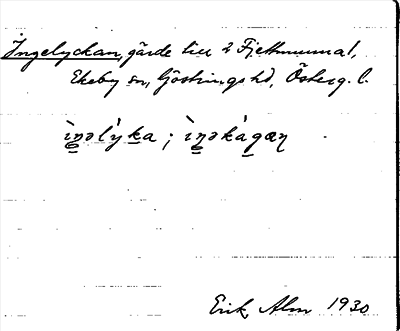 Ingelyckan, gärde till 2 Fjettmunna!,
Ekeby sn, Göstrings hd, Österg. l.
ìŋəlýka; ìŋəkàgæŋ
Erik Alm 1930